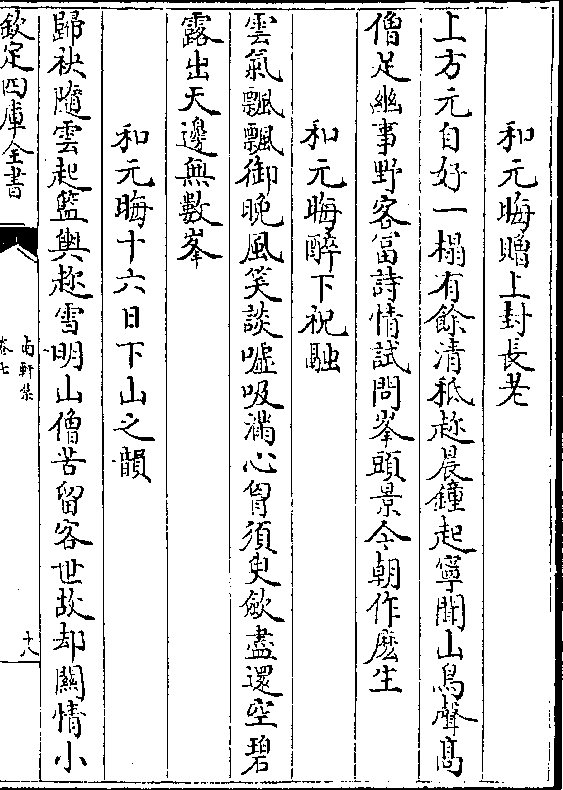 和元晦贈上封長老
上方元自好一榻有餘清秪趂晨鐘起寧聞山鳥聲髙
僧足幽事野客富詩情試問峯頭景今朝作麽生
和元晦醉下祝融
雲氣飄飄御晚風笑談噓吸滿心胷須臾歛盡還空碧
露出天邊無數峯
和元晦十六日下山之韻
歸袂隨雲起籃輿趂雪明山僧苦留客世故却關情小
欽定四庫全書
南軒集
卷七
十八